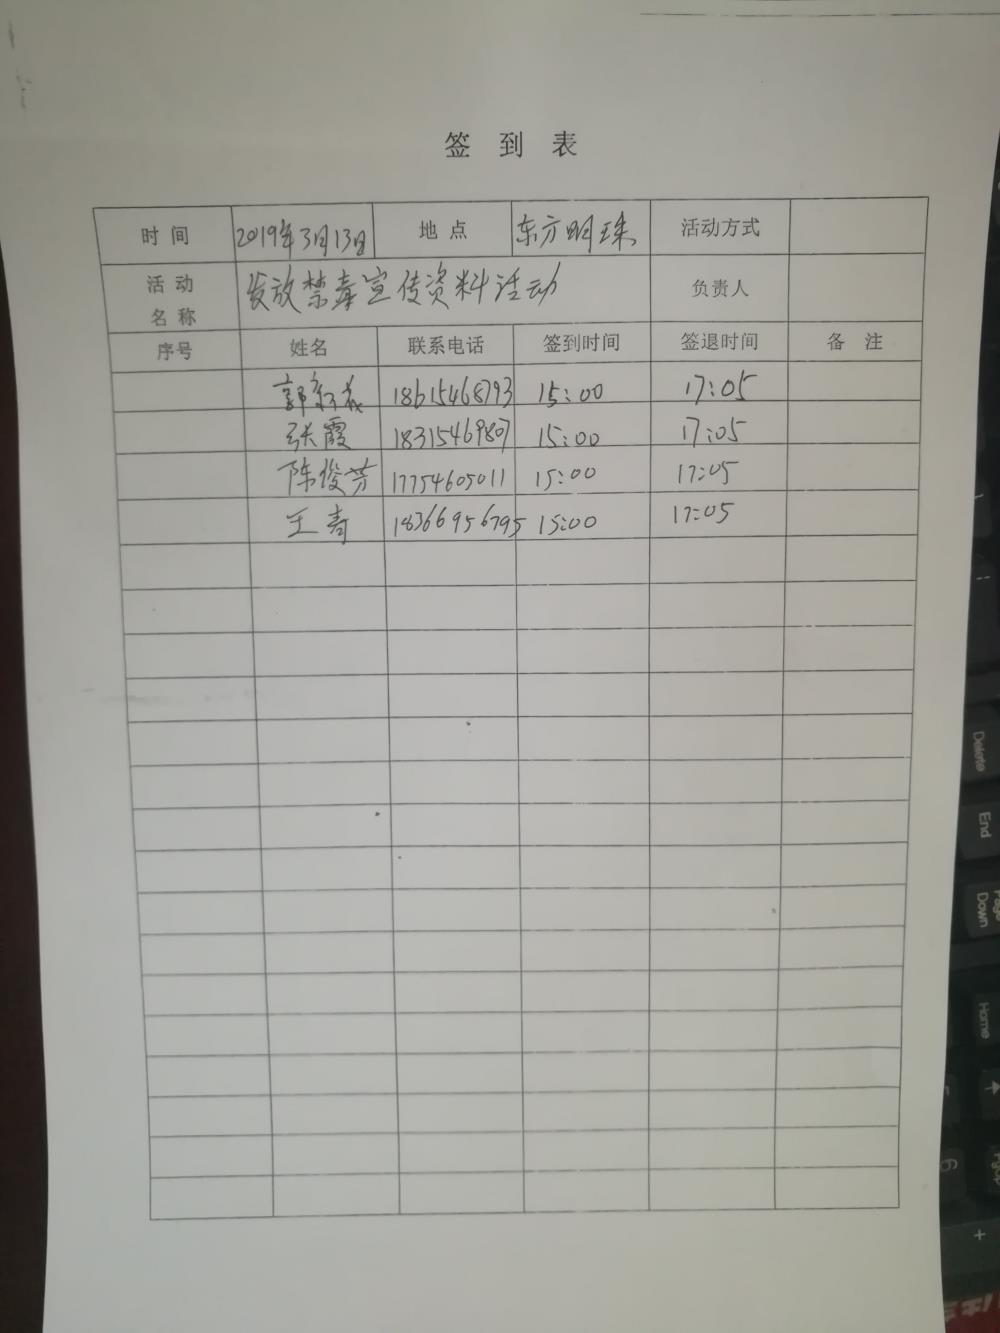 签 到 表
时 间 2019年3月13日 地 点 东方明珠 活动方式
活 动 名 称 发放禁毒宣传资料活动 负责人
序号 姓名 联系电话 签到时间 签退时间 备 注
郭新 18615468793 15:00 17:05
张霞 18315469807 15:00 17:05
陈俊芳 17754605011 15:00 17:05
王 18366956795 15:00 17:05
Delete
End
Page Down
Home
6
+